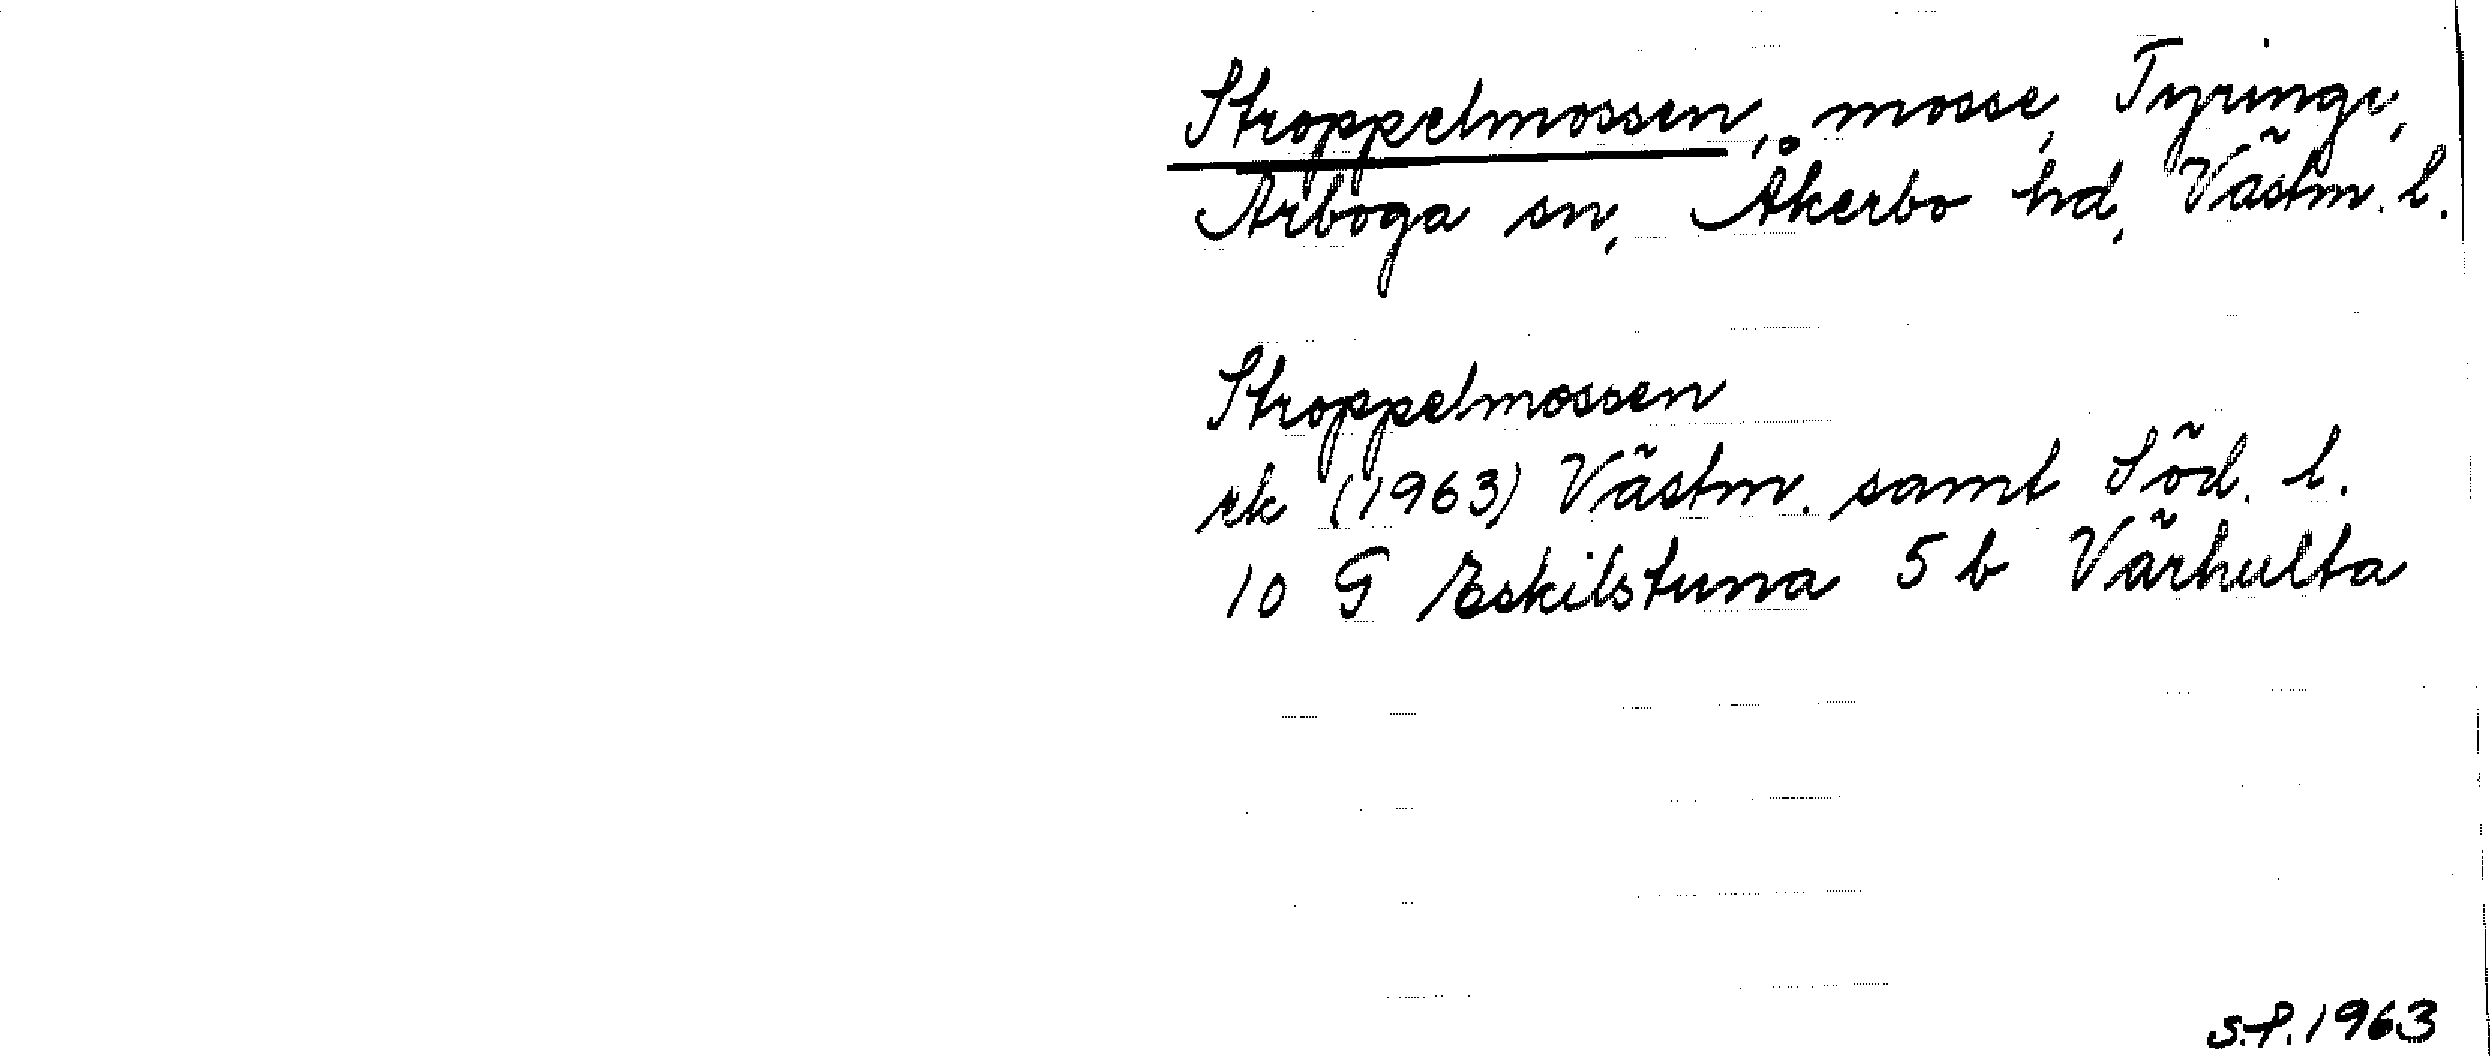 Stroppelmossen, mosse, Tyringe,
Arboga sn, Åkerbo hd, Västm. l.
Stroppelmossen
ek (1963) Västm. samt Söd. l.
10 G Eskilstuna 5 b Värhulta
S.P. 1963